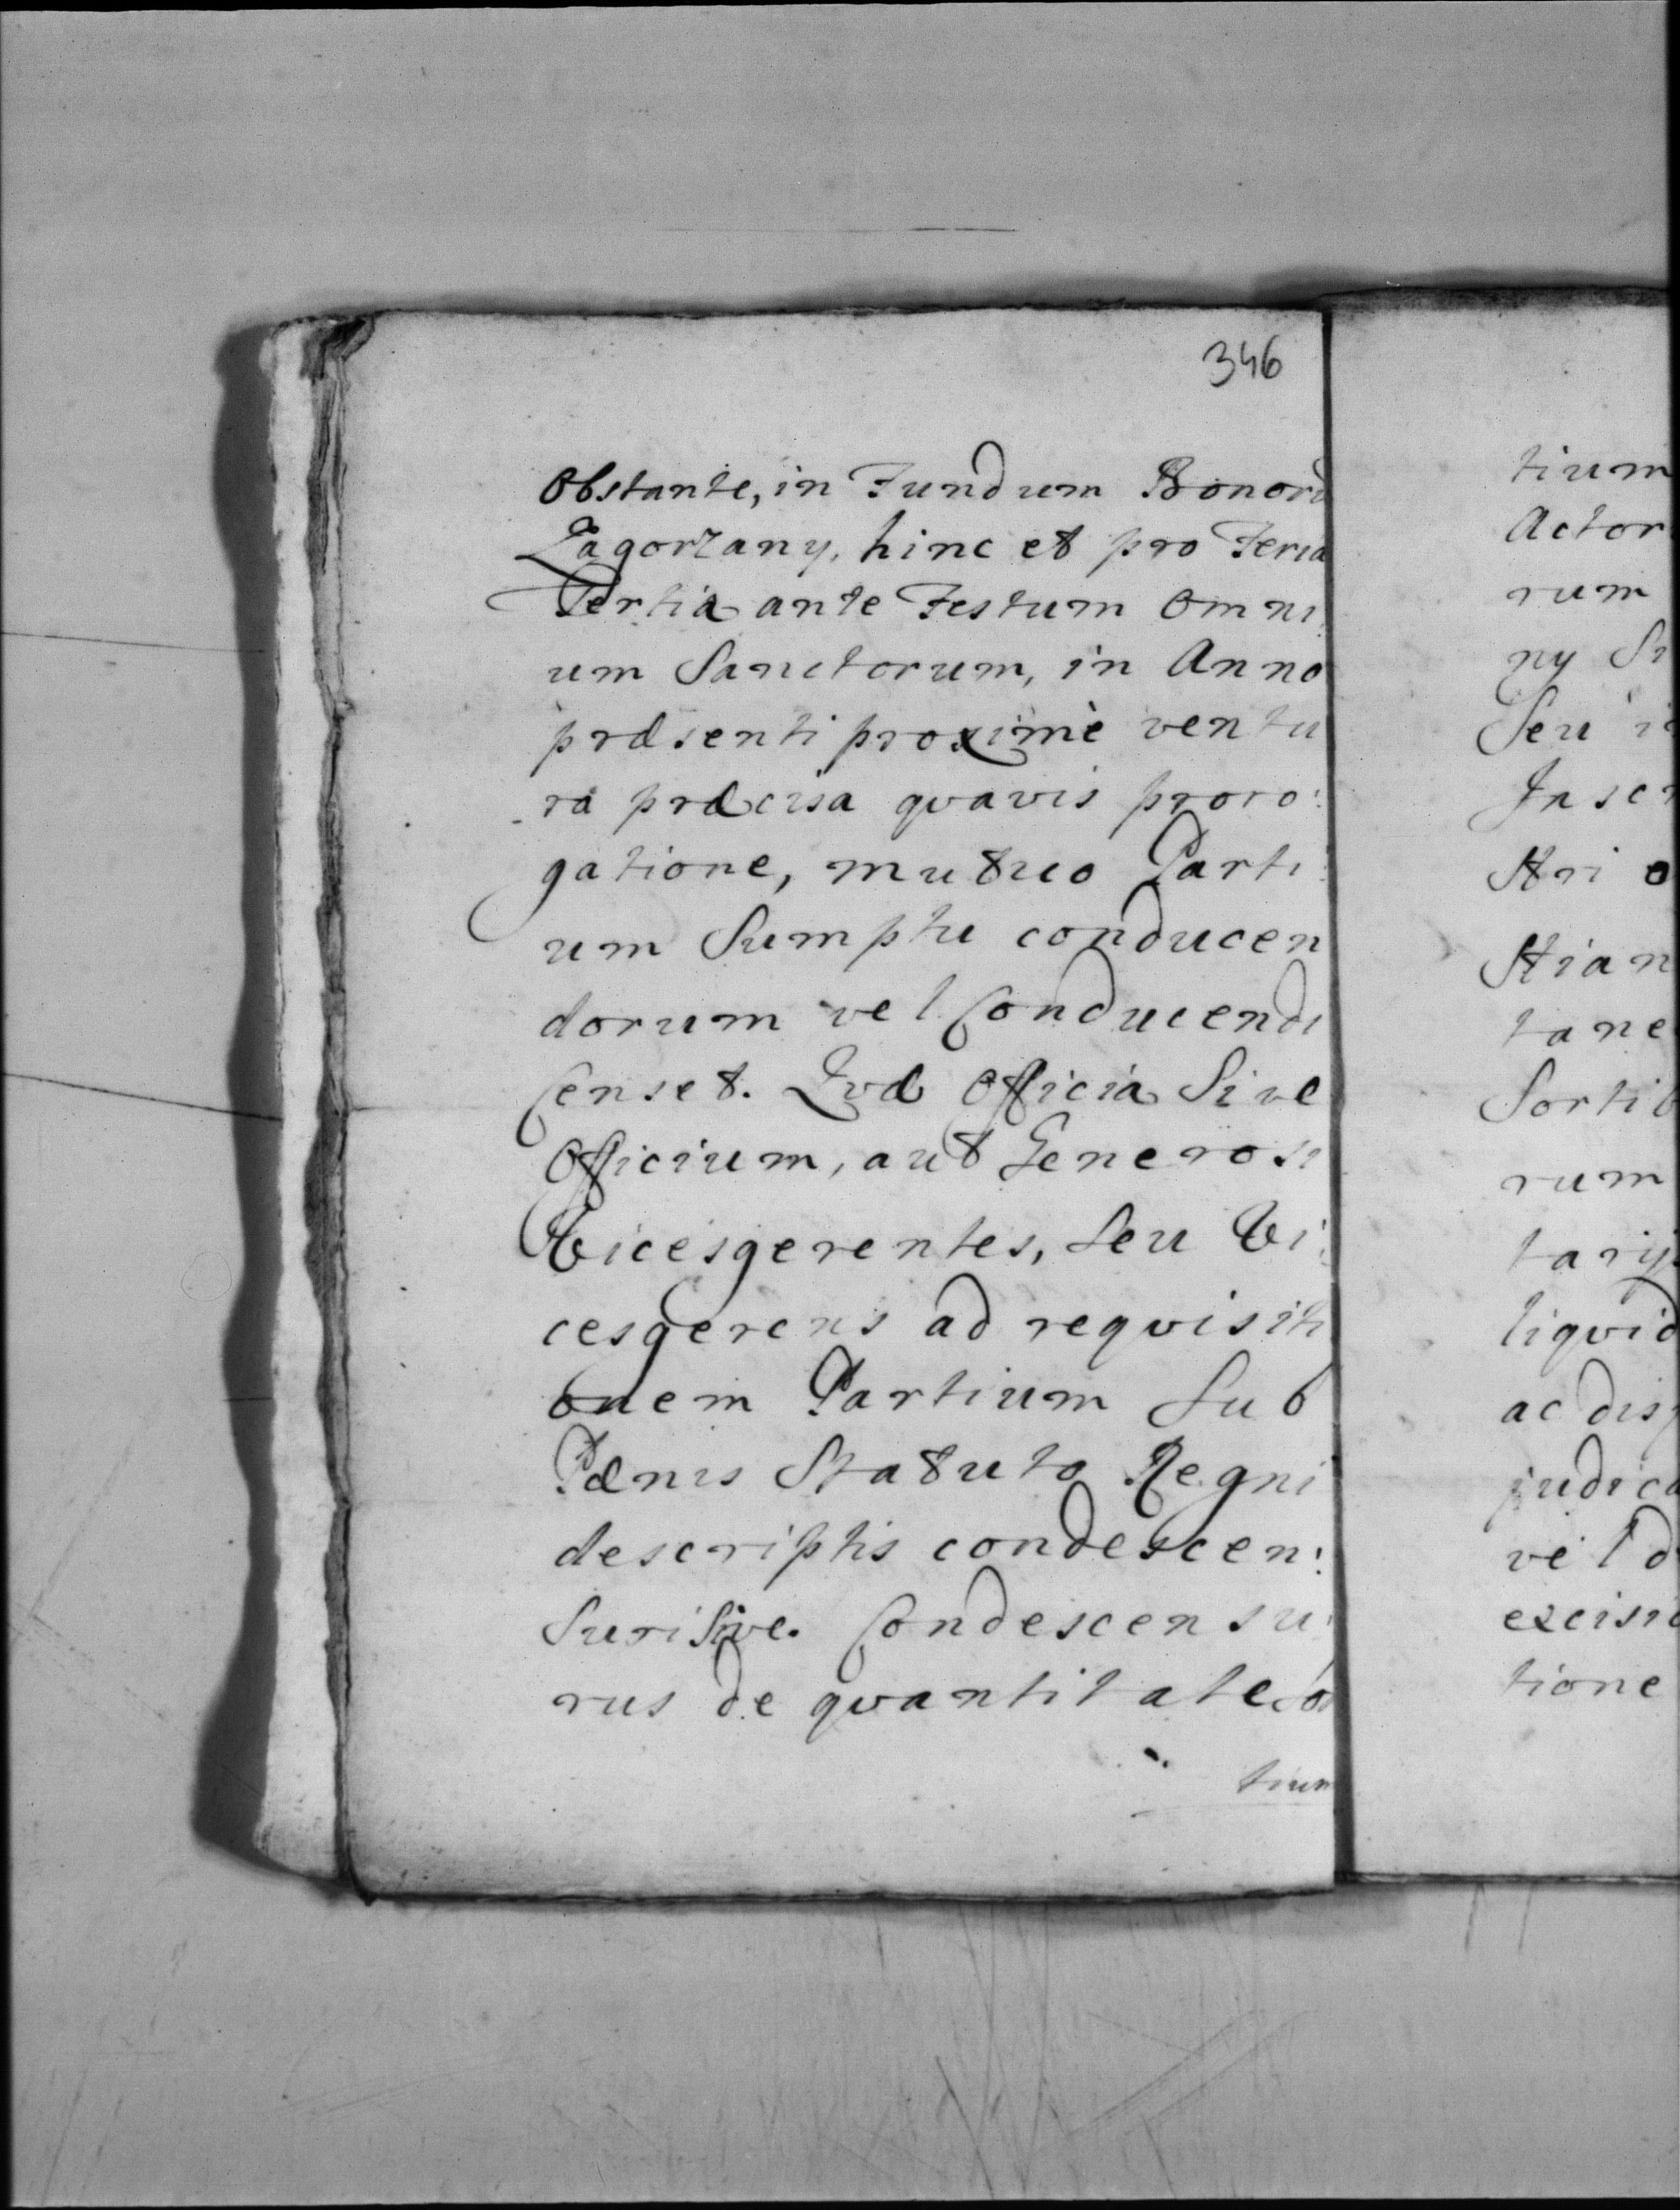 346
Obstante, in Fundum Bonorũ
Zagorzany, hinc et pro Feria
Tertia ante Festum Omni:
um Sanctorum, in Anno
præsenti proximè ventu
ra præcisa qvavis proro:
gatione, mutuo Parti:
um Sumptu conducen
dorum vel Conducendi
Censet. Qvæ Officia Sive
Officium, aut Generosi
Vicesgerentes, Seu Vi:
cesgerens ad reqvisiti
onem Partium Sub
Pænis Statuto Regni
descriptis condescen:
Suri Sive. Condescensu:
rus de qvantitate Sor
tium
tium
Actor
rum
ny
Seu
Inscr
Stri
Stian
tane
Sorti
rum
tarij
liqvid
ac dis
judica
vel d
excisio
tione